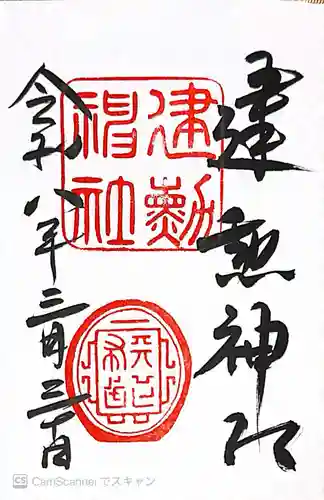 建勲神社
建勲
神社
天下布武
令和八年三月三十日
CS CamScanner でスキャン